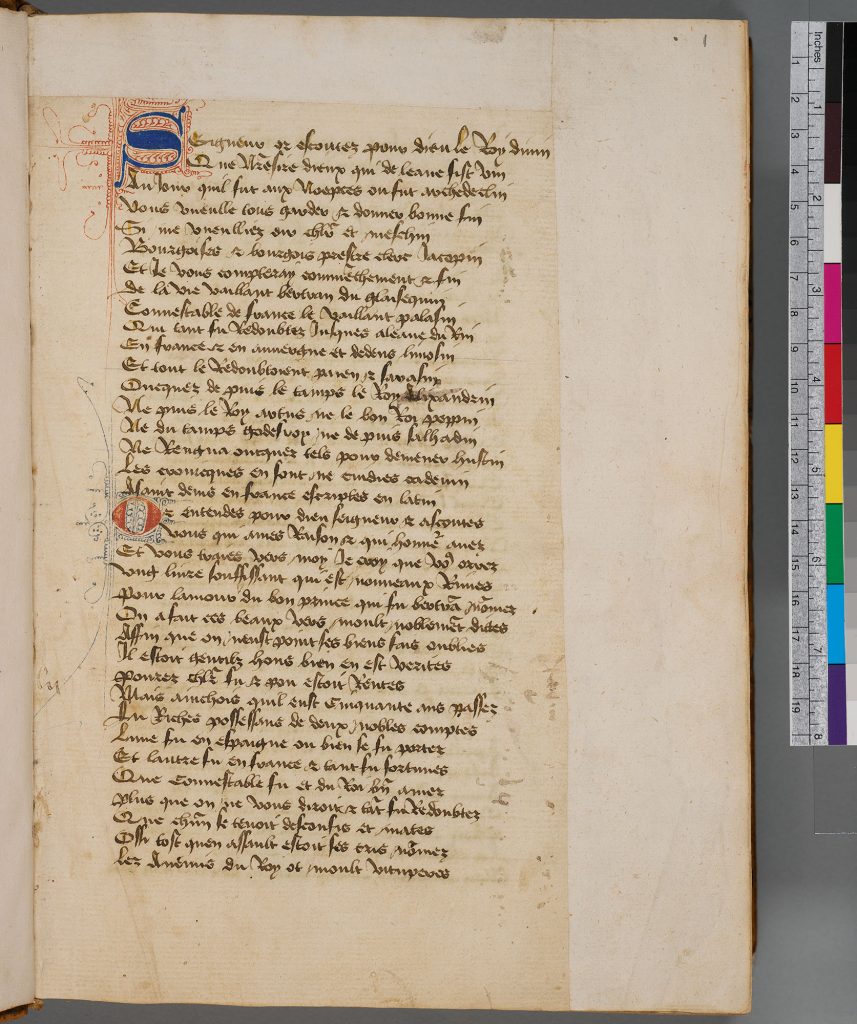 1
Seigneur or escoutez pour dieu le Roy diuin
Que Nresire dieux qui de leaue fist vin
Au Jour quil fut aux Noeptes ou fut archedeclin
Vous vueulle tous garder & donner bonne fin
Si me vueulliez oir chlr et meschin
Bourgoises & bourgois prestre clerc Jacopin
Et Je vous compteray commēchement & fin
de la vie vaillant bertran du glaiequin
Connestable de france le vaillant palasin
Qui tant fu Redoubtez Jusques aleaue du Rin
En france & en auuergne et dedens limosin
Et tout le Redoubtoient paien & sarasin
Oncques de puis le tamps le Roy Alixandrin
Ne puis le Roy artus ne le bon Roi peppin
Ne du tamps godefroy ne de puis salhadin
Ne Rengna oncques tels pour demener hustin
Les cronicques en sont ne cuidies
A saint denis en france escriptes en latin
Or entendes pour dieu seigneur & ascoutes
vous qui ames Raison & qui honnr aues
Et vous toques vers moy Je croy que vo9 orrez
vng liure souffissant qui est nouueaux Rimes
Pour lamour du bon prince qui fu bertrā nōmez
On a fait ces beaux vers moult noblemēt dittes
Affin que on neust point ses biens fais oublies
Jl estoit gentilz homs bien en est verites
Pourez chlr fu & pou estoit Rentes
Mais ainchois quil eust Cinquante ans passez
Fu Riches possessans de deux nobles comptes
Lune fu en espaigne ou bien se fu portez
Et lautre fu en france & tant fu fortunes
Que Connestable fu et du Roi bn amez
Plus que on ne vous diroit & tāt fu Redoubtez
Que chūn se tenoit desconfis et mates
Ossi tost quen assault estoit ses cris nōmez
Lez Anemis du Roy ot moult vituperes
Inches
1 2 3 4 5 6 7 8
1 2 3 4 5 6 7 8 9 10 11 12 13 14 15 16 17 18 19